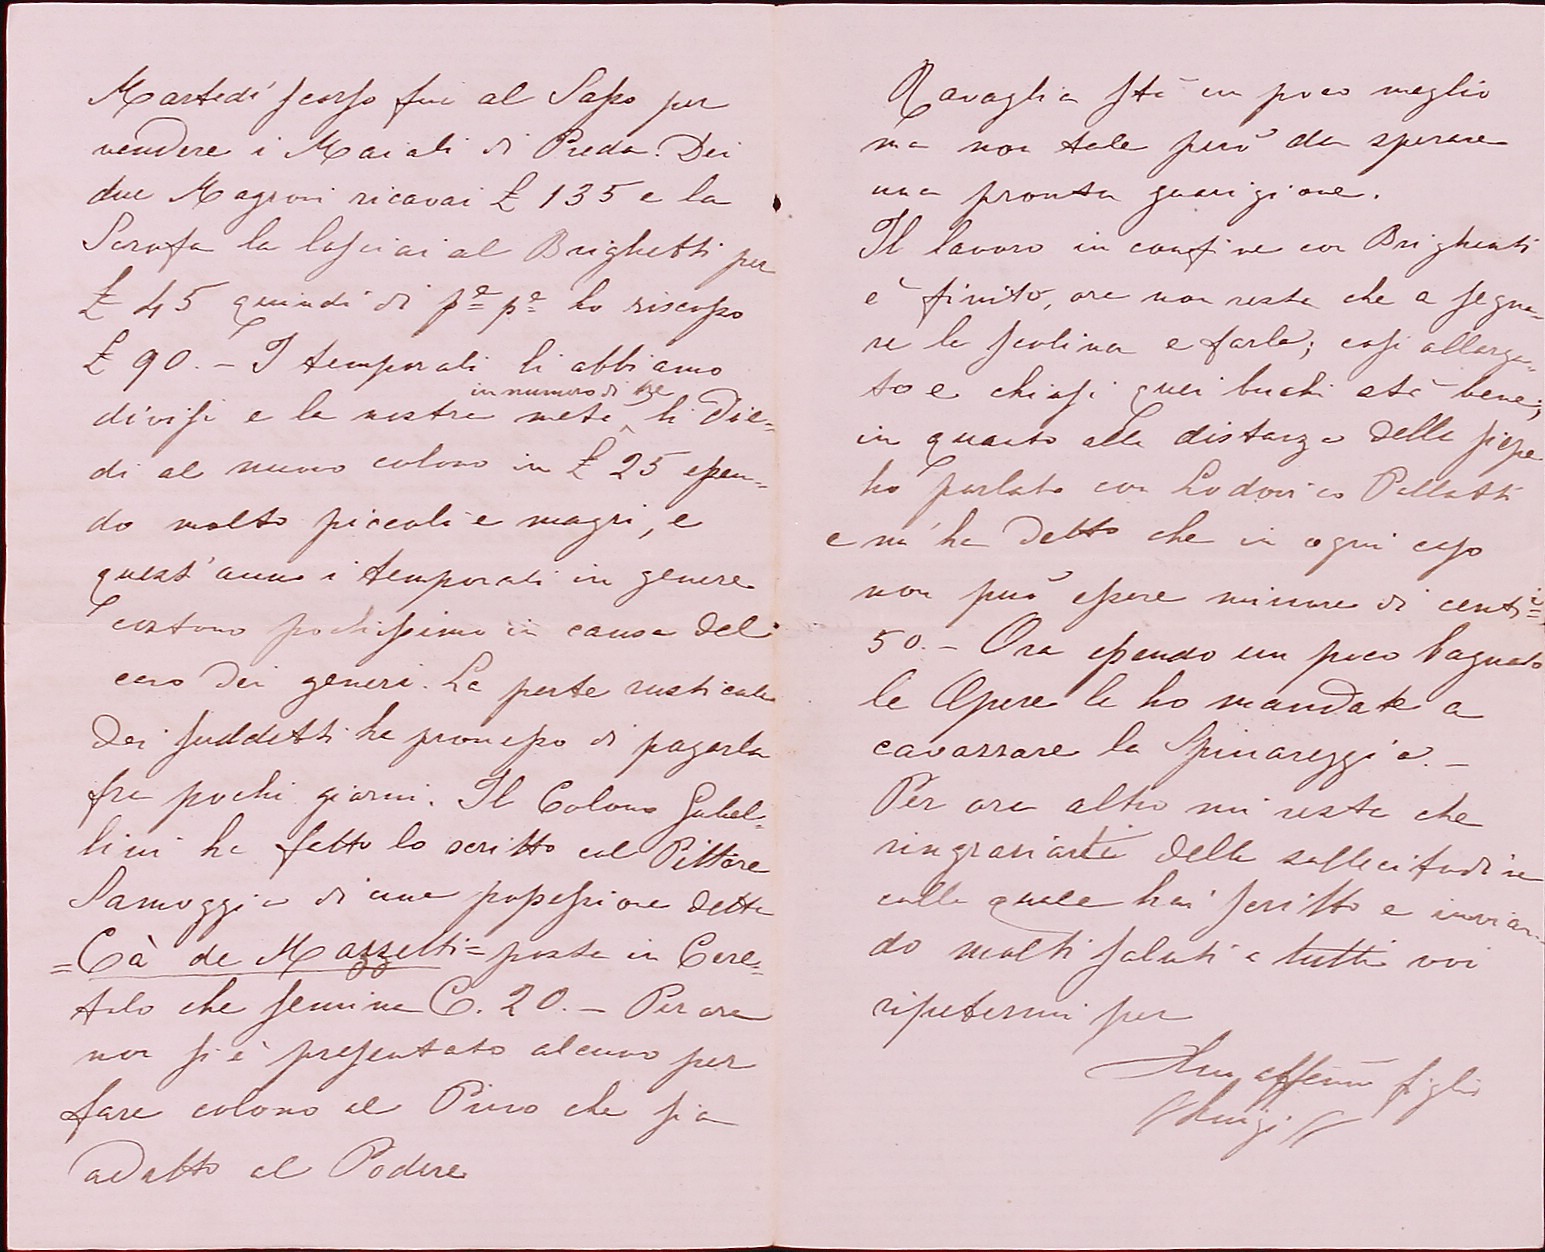 Martedì scorso fui al Sasso per
vendere i Maiali di Preda. Dei
due Magroni ricavai £ 135 e la
Scrofa la lasciai al Brighetti per
£ 45 quindi di pe pe ho riscosso
£ 90. – I temporali li abbiamo
divisi e la nostra metà in numero di tre li die-
di al nuovo colono in £ 25 essen-
do molto piccoli e magri, e
quest'anno i temporali in genere
costano pochissimo in causa del
caro dei generi. La parte rusticale
dei suddetti ha promesso di pagarla
fra pochi giorni. Il Colono Gabel-
lini ha fatto lo scritto col Pittore
Samoggia di una possessione detta
=Cà de Mazzetti= posta in Cere-
tolo che semina C. 20. – Per ora
non si è presentato alcuno per
fare colono al Pino che sia
adatto al Podere
Ravaglia stà un poco meglio
ma non tale però da sperare
una pronta guarigione.
Il lavoro in confine con Brighenti
è finito, ora non resta che a segna-
re la scolina e farla; così allarga-
to e chiusi quei buchi stà bene;
in quanto alla distanza della siepe
ho parlato con Lodovico Pallotti
e m'ha detto che in ogni caso
non può essere minore di centi
50. – Ora essendo un poco bagnato
le Opere le ho mandate a
cavazzare la Spinareggia. –
Per ora altro mi resta che
ringraziarti della sollecitudine
colla quale hai scritto e invian-
do molti saluti a tutti voi
ripetermi per
tuo affemo figlio
Luigi